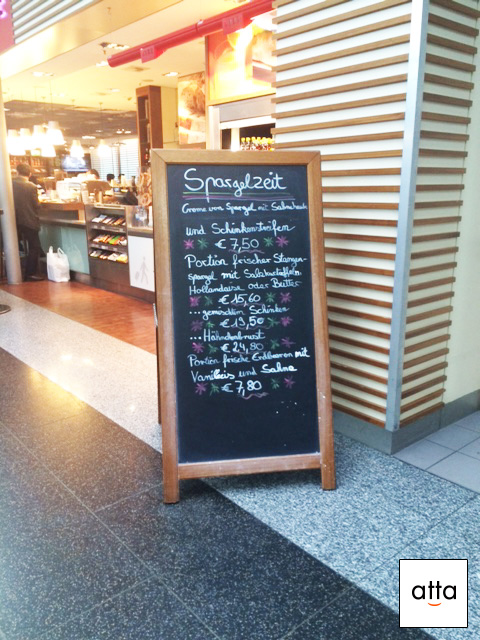 Spargelzeit
Creme von Spargel mit Sahnehaube
und Schinkenstreifen
€ 7,50
Portion frischer Stangen-
spargel mit Salzkartoffeln
Hollandaise oder Butter
€ 15,60
...gemischtem Schinken
€ 19,50
...Hähnchenbrust
€ 24,80
Portion frische Erdbeeren mit
Vanilleeis und Sahne
€ 7,80
atta